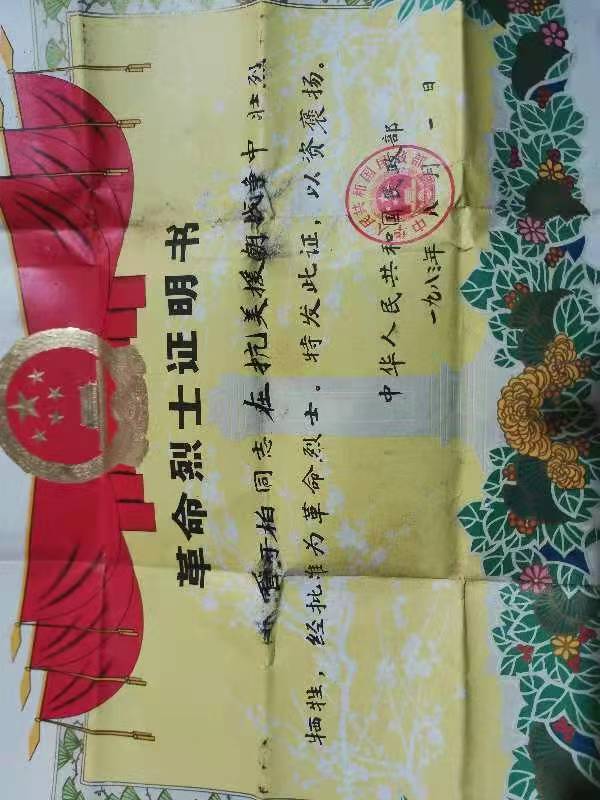 革命烈士证明书
柏同志在抗美援朝战争中壮烈
牺牲，经批准为革命烈士。特发此证，以资褒扬。
中华人民共和国民政部
一九八三年八月一日